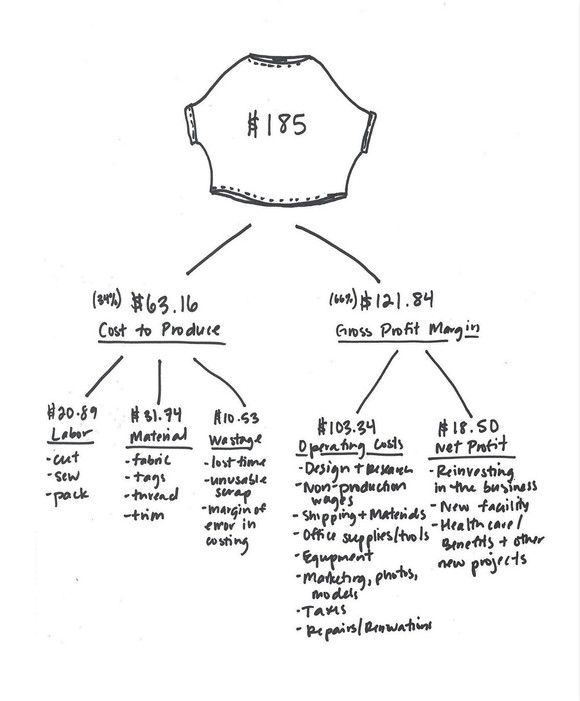 $185
(34%) $63.16
Cost to Produce
(66%) $121.84
Gross Profit Margin
$20.89
Labor
-cut
-sew
-pack
$31.74
Material
-fabric
-tags
-thread
-trim
$10.53
Wastage
-lost time
-unusable
scrap
-margin of
error in
costing
$103.34
Operating Costs
-Design + Research
-Non-production
wages
-Shipping + Materials
-Office supplies/tools
-Equipment
-Marketing, photos,
models
-Taxes
-Repairs/Renovations
$18.50
Net Profit
-Reinvesting
in the business
-New facility
-Healthcare/
Benefits + other
new projects